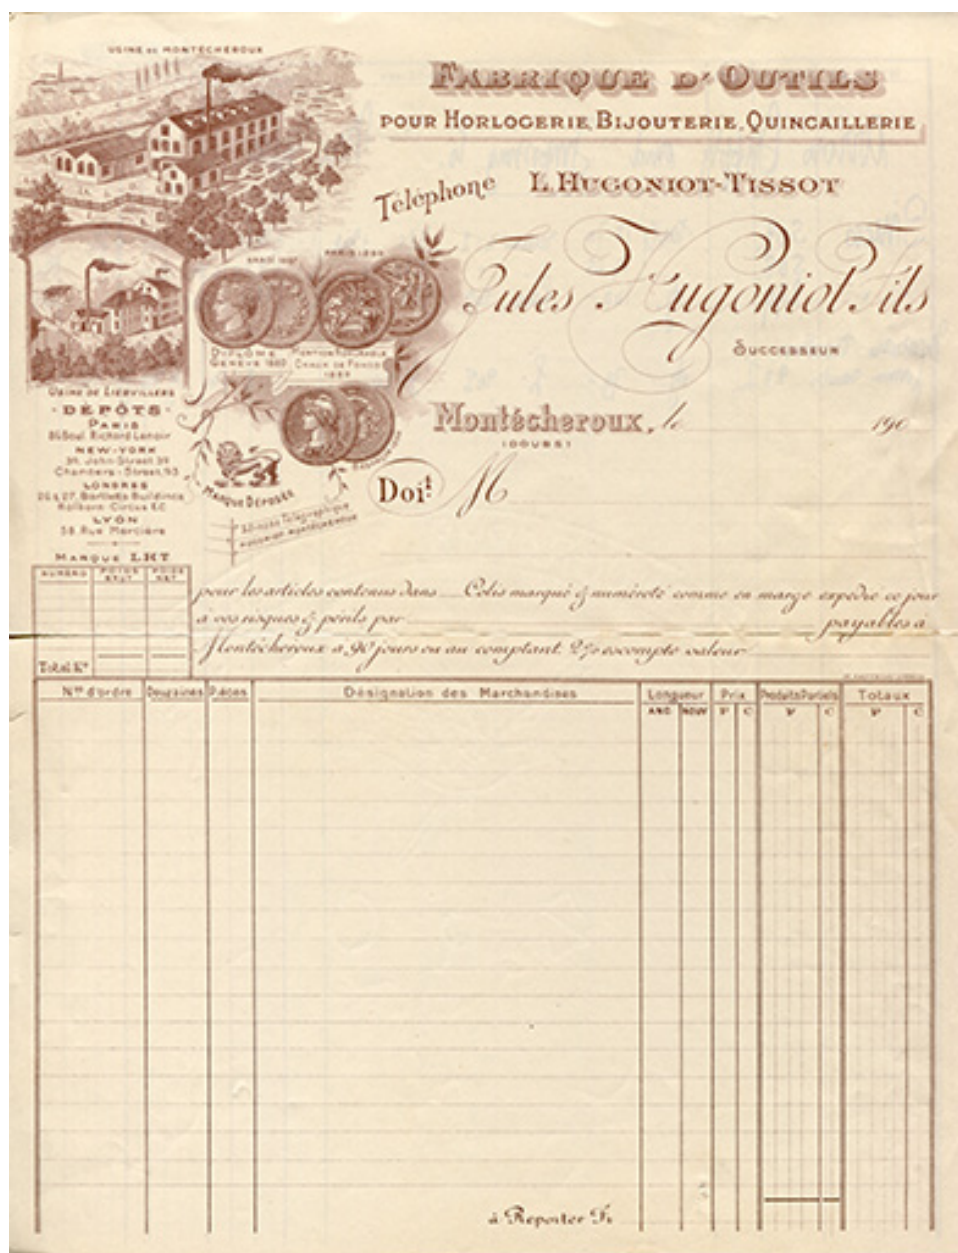 USINE DE MONTÉCHEROUX
FABRIQUE D'OUTILS
POUR HORLOGERIE, BIJOUTERIE, QUINCAILLERIE
Téléphone
L. HUGONIOT-TISSOT
Jules Hugoniot Fils
SUCCESSEUR
PARIS 1889
DIPLÔME
GENÈVE 1880
MENTION HONORABLE
CHAUX DE FONDS
USINE DE LIEBVILLERS
DÉPÔTS
PARIS
Boul. Richard Lenoir
NEW-YORK
39, John-Street 39
Chambers-Street, 93
LONDRES
26 & 27, Bartletts Buildings
Holborn-Circus E.C
LYON
58 Rue Mercière
MARQUE LHT
MARQUE DÉPOSÉE
Adresse Télégraphique
HUGONIOT MONTÉCHEROUX
Montécheroux, le 190
(DOUBS)
Doit M
NUMÉRO POIDS BRUT POIDS NET
Total Kº
pour les articles contenus dans Colis marqué & numéroté comme en marge expédié ce jour
à vos risques & périls par payables à
Montécheroux à 90 jours ou au comptant 2% escompte valeur
Nºs d'ordre Douzaines Pièces Désignation des Marchandises Longueur Prix Produits Partiels Totaux
ANC NOUV F C F C F C
à Reporter Fr